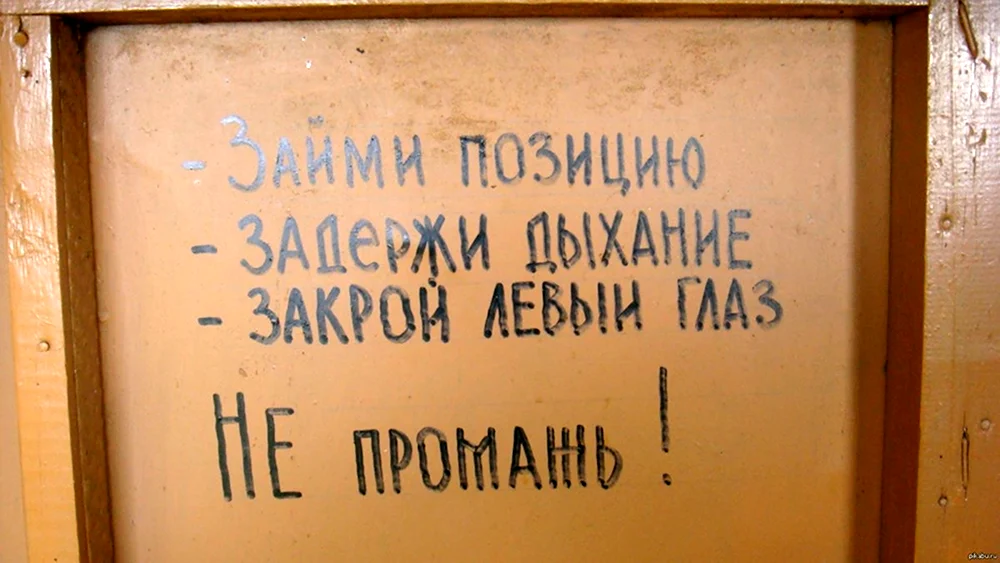 - Займи позицию
- Задержи дыхание
- Закрой левый глаз
Не промажь!
pikabu.ru